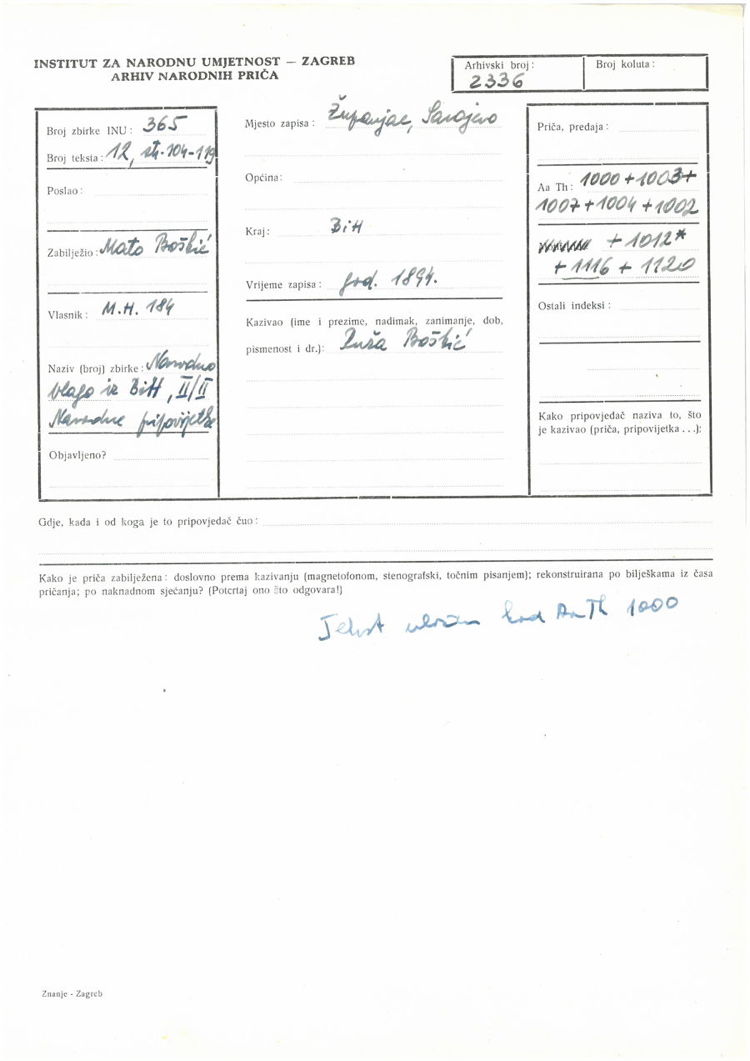 INSTITUT ZA NARODNU UMJETNOST — ZAGREB
ARHIV NARODNIH PRIČA
Arhivski broj:
2336
Broj koluta:
Broj zbirke INU: 365
Broj teksta: 12, str. 104-119
Poslao:
Zabilježio: Mato Boškić
Vlasnik: M.H. 184
Naziv (broj) zbirke: Narodno
blago iz BiH, II/II
Narodne pripovijetke
Objavljeno?
Mjesto zapisa: Županjac, Sarajevo
Općina:
Kraj: BiH
Vrijeme zapisa: god. 1894.
Kazivao (ime i prezime, nadimak, zanimanje, dob,
pismenost i dr.): Ruža Boškić
Priča, predaja:
Aa Th: 1000 + 1003 +
1007 + 1004 + 1002
+ 1012*
+ 1116 + 1120
Ostali indeksi:
Kako pripovjedač naziva to, što
je kazivao (priča, pripovijetka . . .):
Gdje, kada i od koga je to pripovjedač čuo:
Kako je priča zabilježena: doslovno prema kazivanju (magnetofonom, stenografski, točnim pisanjem); rekonstruirana po bilješkama iz časa
pričanja; po naknadnom sjećanju? (Potcrtaj ono što odgovara!)
Tekst uložen kod AaTh 1000
Znanje - Zagreb